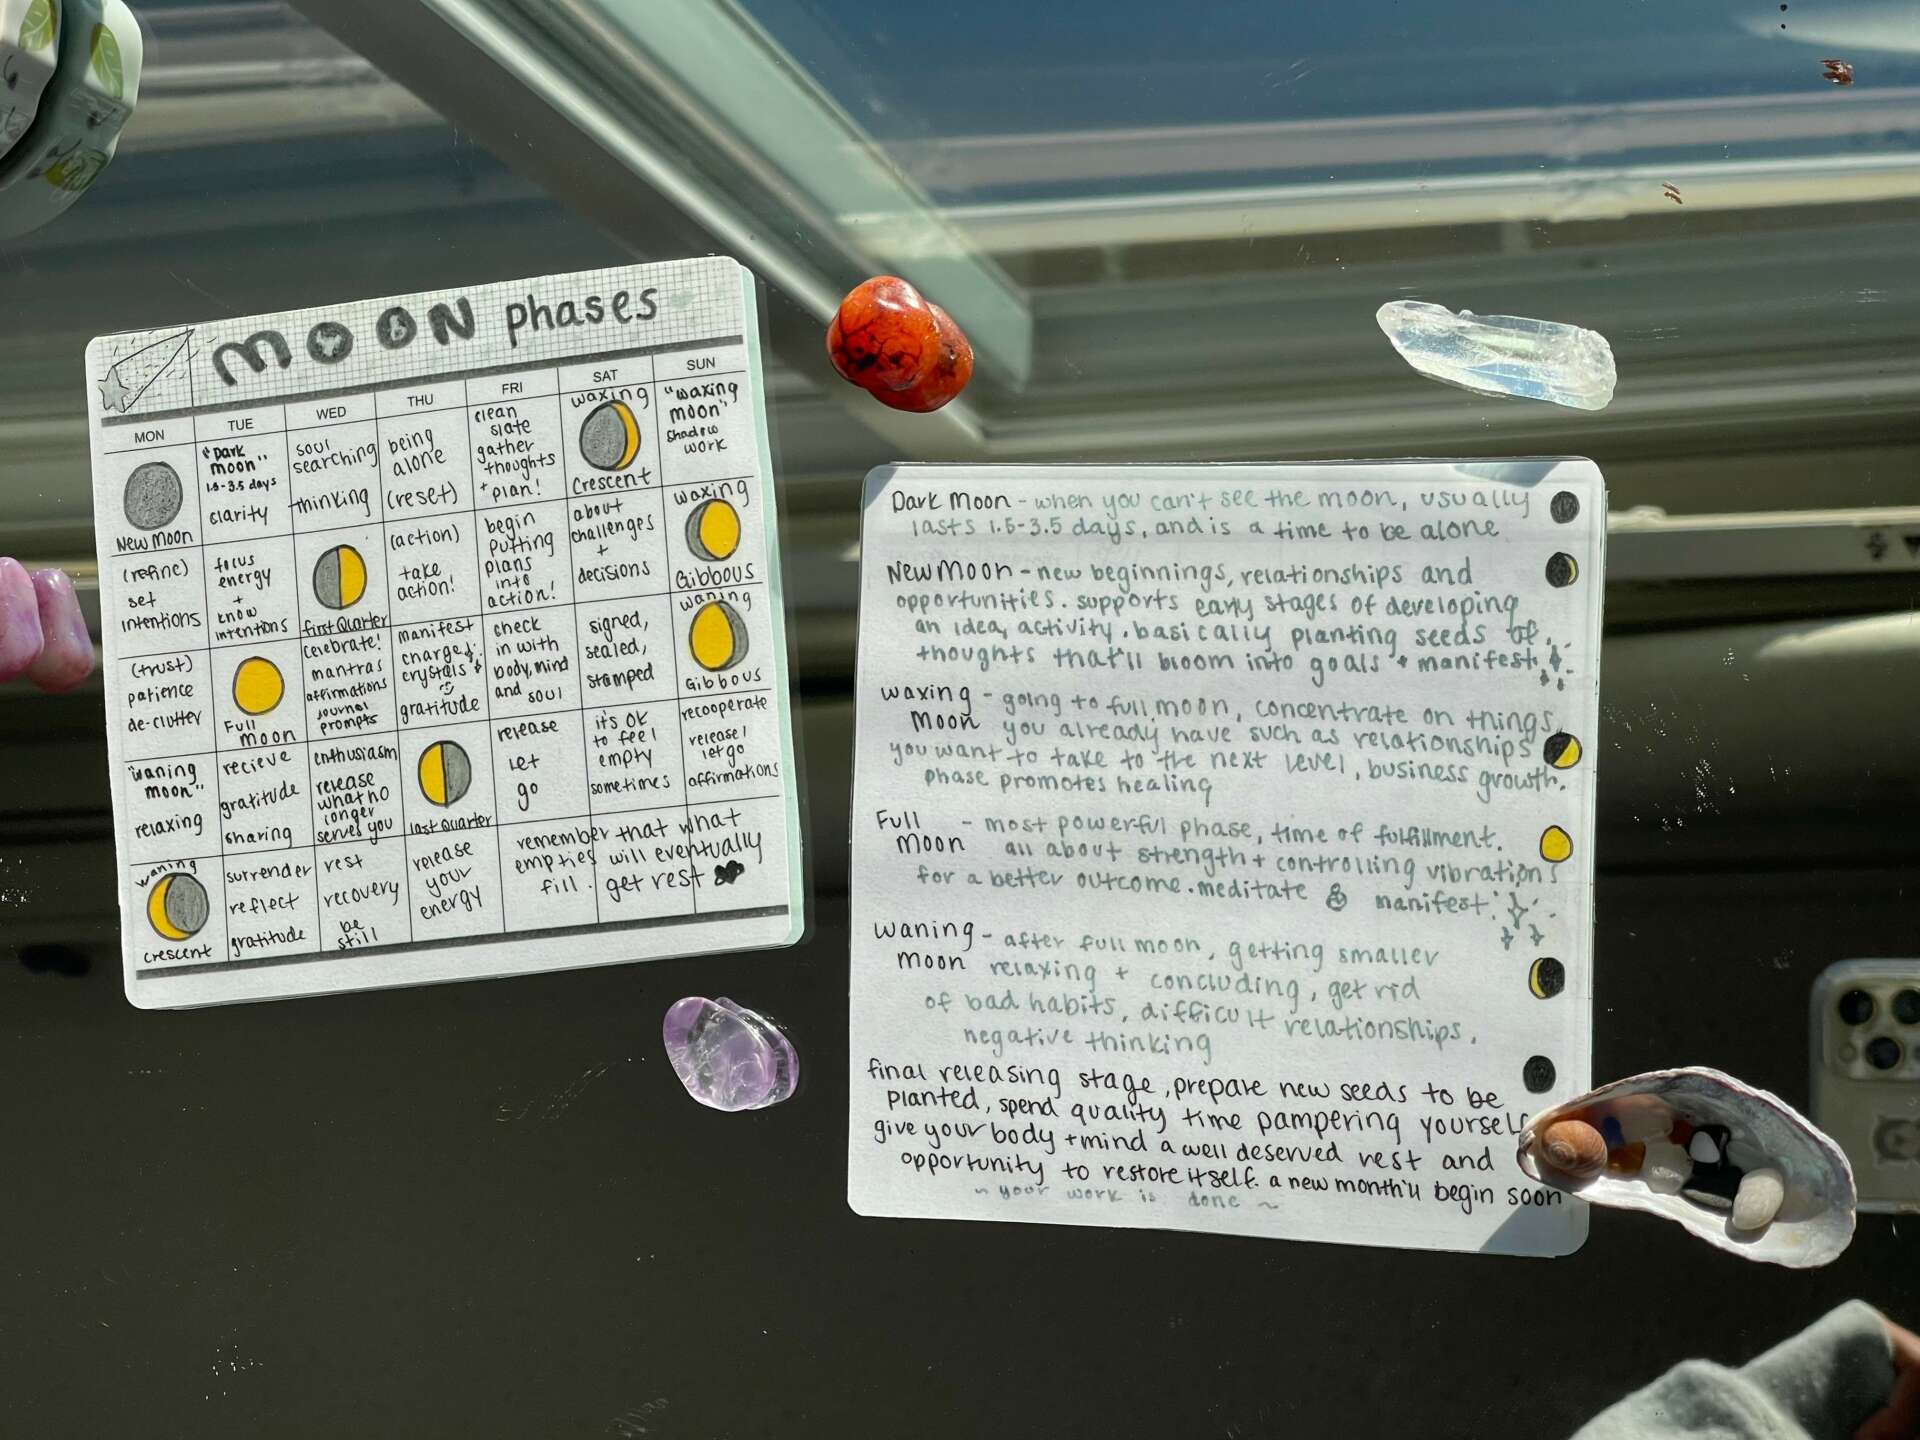 MOON phases
MON
TUE
WED
THU
FRI
SAT
SUN
New Moon
"Dark
moon"
1.5-3.5 days
clarity
soul
searching
thinking
being
alone
(reset)
clean
slate
gather
thoughts
+ plan!
waxing
Crescent
"waxing
moon"
shadow
work
(refine)
set
intentions
focus
energy
+
know
intentions
first Quarter
(action)
take
action!
begin
putting
plans
into
action!
about
challenges
+
decisions
waxing
Gibbous
(trust)
patience
de-clutter
Full
moon
celebrate!
mantras
affirmations
journal
prompts
manifest
charge
crystals
gratitude
check
in with
body, mind
and soul
signed,
sealed,
stamped
waning
Gibbous
"waning
moon"
relaxing
recieve
gratitude
sharing
enthusiasm
release
what no
longer
serves you
last Quarter
release
let
go
it's ok
to feel
empty
sometimes
recooperate
release/
let go
affirmations
waning
crescent
surrender
reflect
gratitude
rest
recovery
be
still
release
your
energy
remember that what
empties will eventually
fill. get rest
Dark Moon - when you can't see the moon, usually
lasts 1.5-3.5 days, and is a time to be alone
New Moon - new beginnings, relationships and
opportunities. supports early stages of developing
an idea, activity. basically planting seeds of
thoughts that'll bloom into goals + manifest
waxing - going to full moon, concentrate on things
Moon you already have such as relationships
you want to take to the next level, business growth.
phase promotes healing
Full - most powerful phase, time of fulfillment.
Moon all about strength + controlling vibrations
for a better outcome. meditate & manifest
Waning - after full moon, getting smaller
Moon relaxing + concluding, get rid
of bad habits, difficult relationships,
negative thinking
final releasing stage, prepare new seeds to be
planted, spend quality time pampering yourself
give your body + mind a well deserved rest and
opportunity to restore itself. a new month'll begin soon
~ your work is done ~